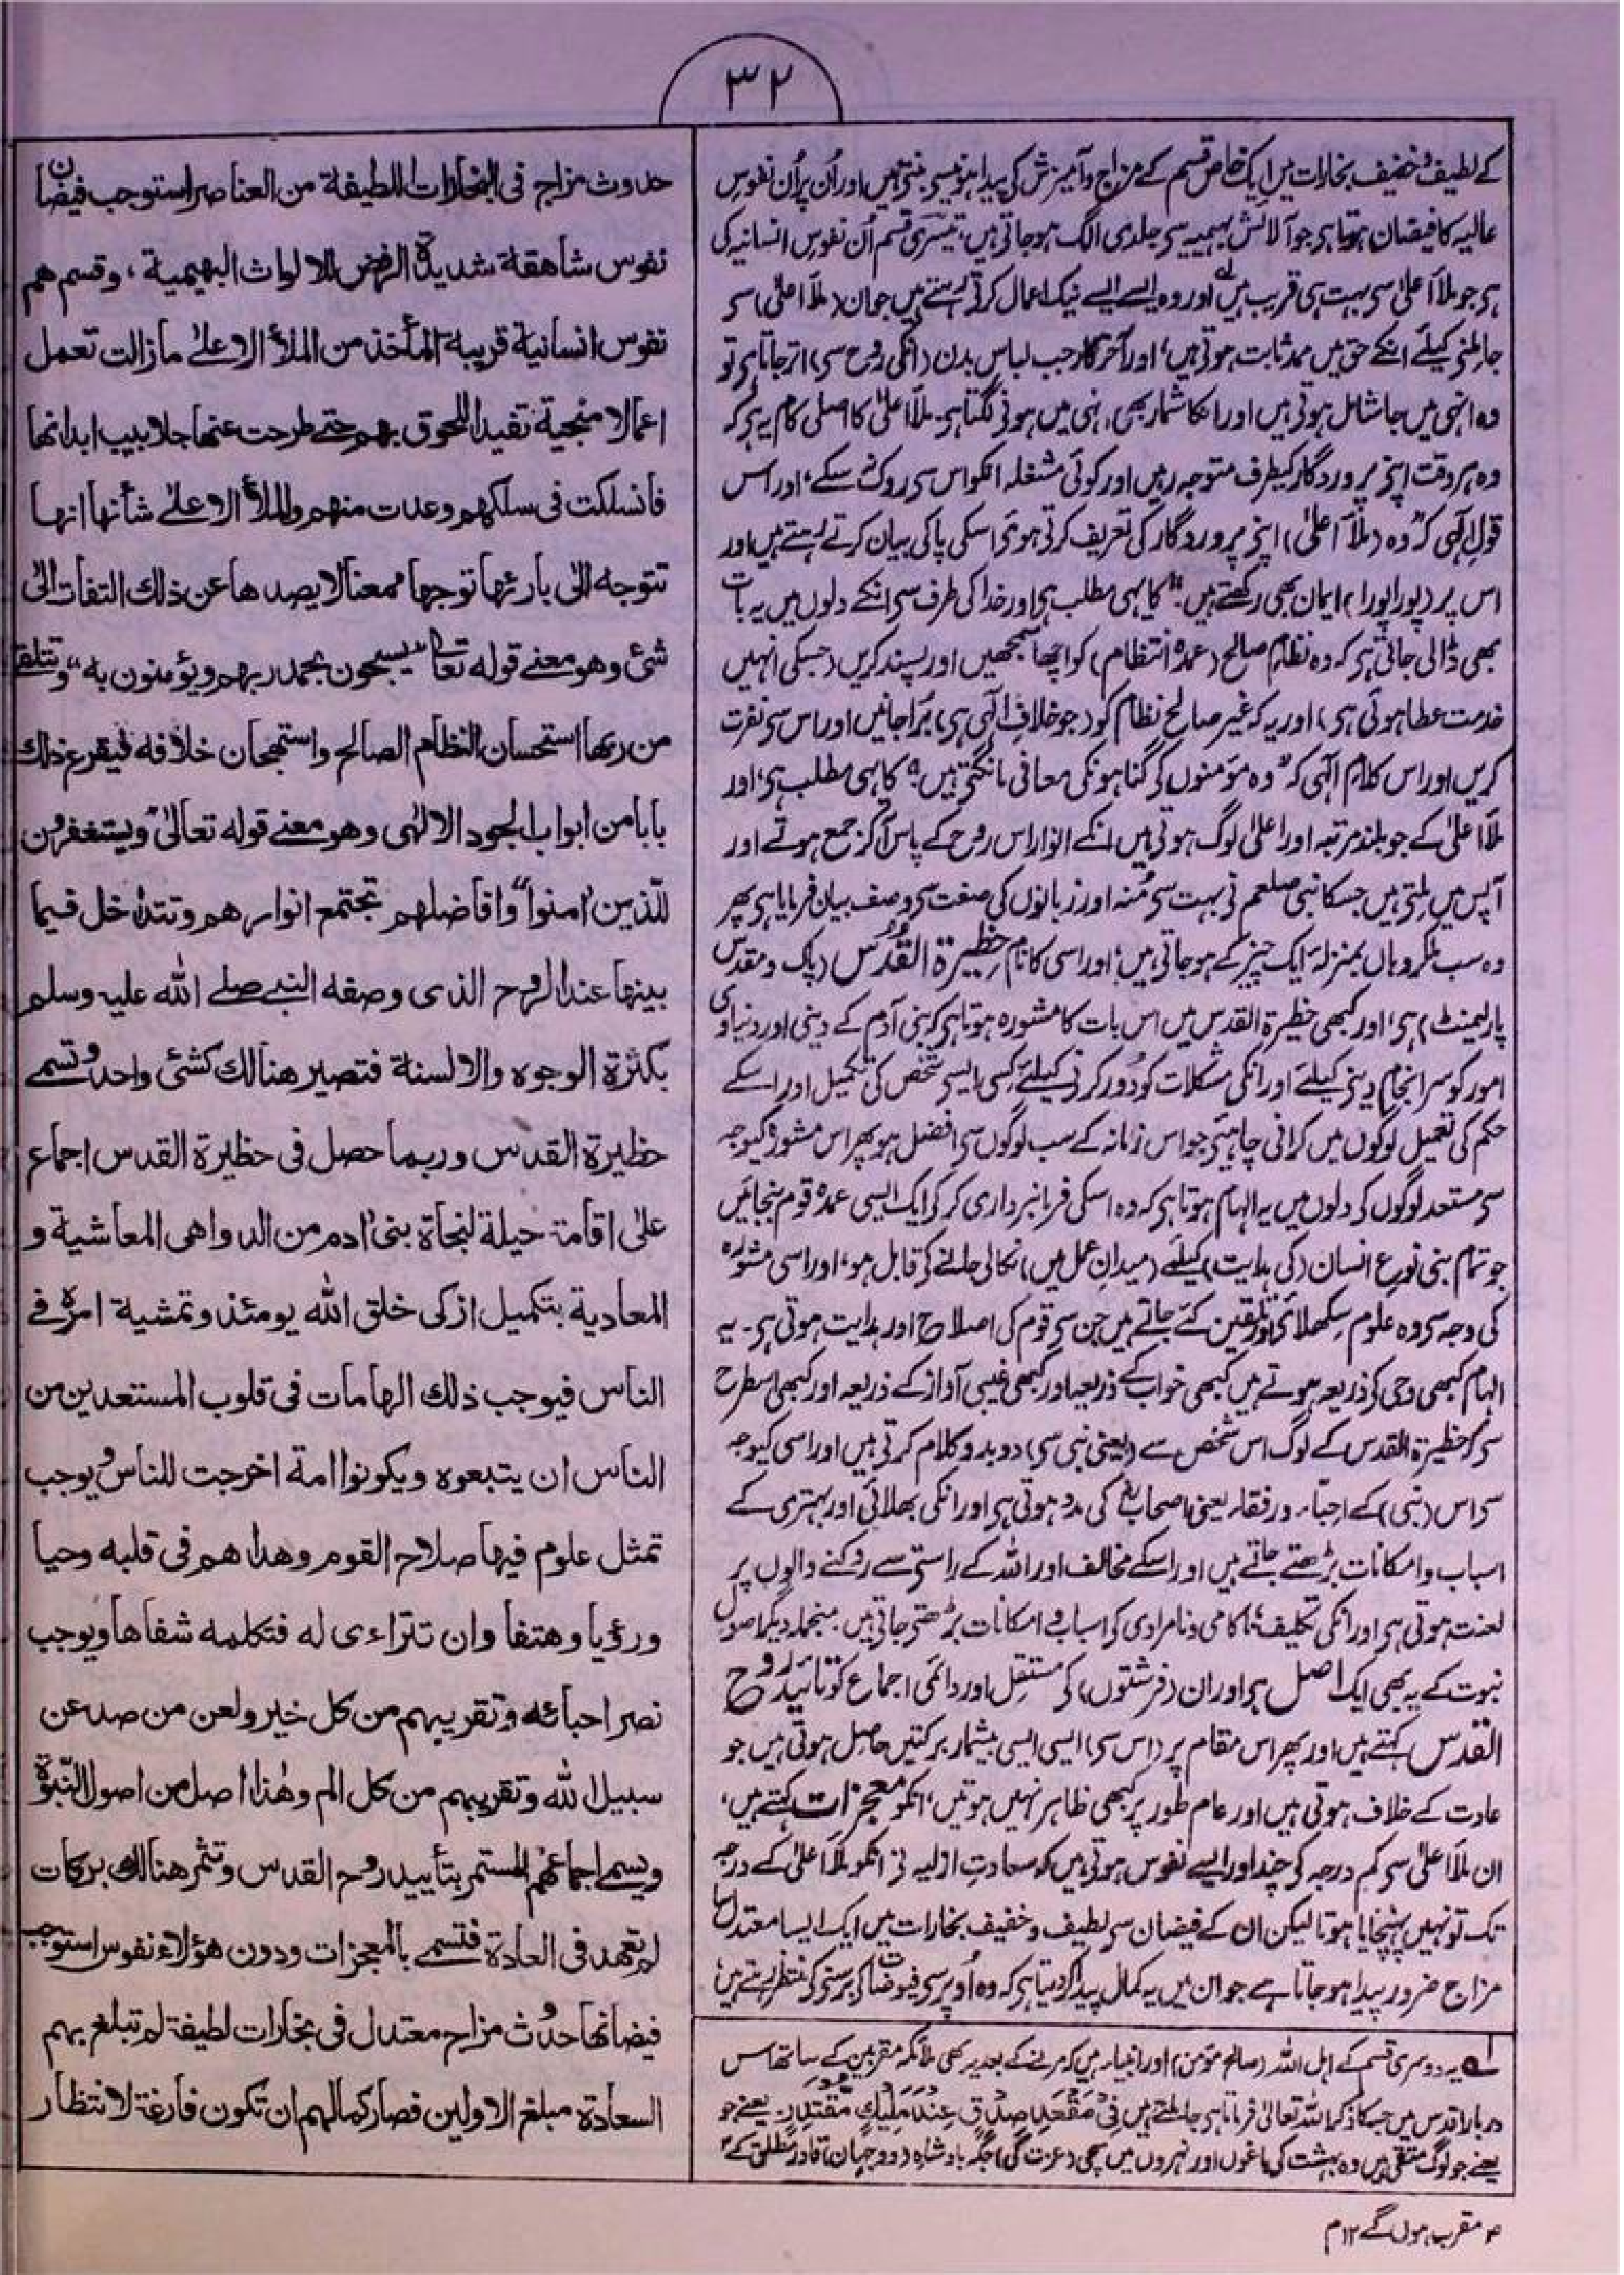 ۳۲
کے لطیف و خفیف بخارات میں ایک خاص قسم کے مزاج و آمیزش کی پیدا ہونیسے بنتی ہیں اور اُن پر اُن نفوسِ
عالیہ کا فیضان ہوتا ہی جو آلائش بہیمیہ سی جلدی الگ ہو جاتی ہیں، تیسری قسم اُن نفوسِ انسانیہ کی
ہی جو ملأ اعلیٰ سی بہت ہی قریب ہیں لہ اور وہ ایسے ایسے نیک اعمال کرتی رہتے ہیں جو ان (ملأ اعلیٰ) سی
جا ملنی کیلئے انکے حق میں ممد ثابت ہوتی ہیں، اور آخر کار جب لباس بدن (انکی روح سی) اتر جاتا ہی تو
وہ انہی میں جا شامل ہوتی ہیں اور انکا شمار بھی انہی میں ہونی لگتا ہی۔ ملأ اعلیٰ کا اصلی کام یہ ہی کہ
وہ ہر وقت اپنی پروردگار کیطرف متوجہ رہیں اور کوئی مشغلہ انکو اس سی روک نہ سکے، اور اس
قولِ الٰہی کہ "وہ (ملأ اعلیٰ) اپنی پروردگار کی تعریف کرتی ہوئی اسکی پاکی بیان کرتے رہتے ہیں اور
اس پر (پورا پورا) ایمان بھی رکھتے ہیں" کا یہی مطلب ہی اور خدا کی طرف سی انکے دلوں میں یہ بات
بھی ڈالی جاتی ہی کہ وہ نظامِ صالح (عمدہ انتظام) کو اچھا سمجھیں اور پسند کریں (جسکی انہیں
خدمت عطا ہوئی ہی) اور یہ کہ غیر صالح نظام کو (جو خلافِ الٰہی ہی) بُرا جانیں اور اس سی نفرت
کریں اور اس کلام الٰہی کہ "وہ مؤمنوں کی گناہونکی معافی مانگتی ہیں" کا یہی مطلب ہی، اور
ملأ اعلیٰ کے جو بلند مرتبہ اور اعلیٰ لوگ ہوتی ہیں انکے انوار اس روح کے پاس آ کر جمع ہوتے اور
آپس میں ملتی ہیں جسکا نبی صلعم نی بہت سی مُنہ اور زبانوں کی صفت سی وصف بیان فرمایا ہی پھر
وہ سب ملکر وہاں بمنزلہ ایک چیز کے ہو جاتی ہیں، اور اسی کا نام حظیرۃ القُدُس (پاک و مقدس
پارلیمنٹ) ہی، اور کبھی حظیرۃ القدس میں اس بات کا مشورہ ہوتا ہی کہ بنی آدم کے دینی اور دنیاوی
امور کو سرانجام دینی کیلئے اور انکی مشکلات کو دُور کرنی کیلئے کسی ایسی شخص کی تکمیل اور اسکے
حکم کی تعمیل لوگوں میں کرانی چاہیئی جو اس زمانہ کے سب لوگوں سی افضل ہو پھر اس مشورہ کیوجہ
سی مستعد لوگوں کی دلوں میں یہ الہام ہوتا ہی کہ وہ اسکی فرمانبرداری کر کی ایک ایسی عمدہ قوم بنجائیں
جو تمام بنی نوعِ انسان (کی ہدایت) کیلئے (میدانِ عمل میں) نکالی جانے کی قابل ہو، اور اسی مشورہ
کی وجہ سی وہ علوم سکھلائی اور تلقین کئے جاتے ہیں جن سی قوم کی اصلاح اور ہدایت ہوتی ہی۔ یہ
الہام کبھی وحی کی ذریعہ ہوتے ہیں کبھی خواب کے ذریعہ اور کبھی غیبی آواز کے ذریعہ اور کبھی اسطرح
سی کہ حظیرۃ القدس کے لوگ اس شخص سے (یعنی نبی سی) دوبدو کلام کرتی ہیں اور اسی کیوجہ
سی اس (نبی) کے احبّاء و رفقاء یعنی اصحاب کی مدد ہوتی ہی اور انکی بھلائی اور بہتری کے
اسباب و امکانات بڑھتے جاتے ہیں اور اسکے مخالف اور اللہ کے راستی سے روکنے والوں پر
لعنت ہوتی ہی اور انکی تکلیف، ناکامی و نامرادی کی اسباب و امکانات بڑھتی جاتی ہیں۔ منجملہ دیگر اصول
نبوت کے یہ بھی ایک اصل ہی اور ان (فرشتوں) کی مستقل اور دائمی اجماع کو تائید روح
القدس کہتے ہیں اور پھر اس مقام پر (اس سی) ایسی ایسی بیشمار برکتیں حاصل ہوتی ہیں جو
عادت کے خلاف ہوتی ہیں اور عام طور پر کبھی ظاہر نہیں ہوتیں، انکو معجزات کہتے ہیں،
ان ملأ اعلیٰ سی کم درجہ کی چند اور ایسے نفوس ہوتی ہیں کہ سعادتِ ازلیہ نی انکو ملأ اعلیٰ کے درجہ
تک تو نہیں پہنچایا ہوتا لیکن ان کے فیضان سی لطیف و خفیف بخارات میں ایک ایسا معتدل سا
مزاج ضرور پیدا ہو جاتا ہے جو ان میں یہ کمال پیدا کر دیتا ہی کہ وہ اُوپر سی فیوضات کی برسنی کی منتظر رہتے ہیں؛
لہ یہ دوسری قسم کے اہل اللہ (صالح مؤمن) اور انبیاء ہیں کہ مرنے کے بعد یہ بھی ملائکہ مقربین کے ساتھ اس
دربارِ اقدس میں جسکا ذکر اللہ تعالیٰ فرماتا ہی جا ملتے ہیں فِیْ مَقْعَدِ صِدْقٍ عِنْدَ مَلِیْكٍ مُّقْتَدِرٍ۔ یعنے جو
یعنے جو لوگ متقی ہیں وہ بہشت کی باغوں اور نہروں میں سچی (عزت کی) جگہ بادشاہِ (دو جہان) قادرِ مطلق کے
۴ مقرب ہوں گے ۱۲ م
حدوث مزاج فی البخارات اللطیفة من العناصر استوجب فیضان
نفوس شاهقة شدیدة الرفض للالواث البهیمیة، وقسم هم
نفوس انسانیة قریبة المأخذ من الملأ الاعلیٰ مازالت تعمل
اعمالا منجیة تفید اللحوق بهم حتے طرحت عنها جلابیب ابدانها
فانسلکت فی سلکهم وعدت منهم والملأ الاعلیٰ شأنها انها
تتوجه الیٰ بارئها توجها ممعنا لا یصدها عن ذلك التفات الیٰ
شیٔ وهو معنے قوله تعالیٰ "یسبحون بحمد ربهم ویؤمنون به" وتتلقے
من ربها استحسان النظام الصالح واستهجان خلافه فیقرع ذلك
بابا من ابواب الجود الالٰهی وهو معنے قوله تعالیٰ "ویستغفرون
للذین اٰمنوا" وافاضلهم تجتمع انوارهم وتتداخل فیما
بینها عند الروح الذی وصفه النبی صلے الله علیه وسلم
بکثرة الوجوه والالسنة فتصیر هنالك کشئ واحد وتسمے
حظیرة القدس وربما حصل فی حظیرة القدس اجماع
علیٰ اقامة حیلة لنجاة بنی اٰدم من الدواهی المعاشیة و
المعادیة بتکمیل ازکی خلق الله یومئذ وتمشیة امره فے
الناس فیوجب ذلك الهامات فی قلوب المستعدین من
الناس ان یتبعوه ویکونوا امة اخرجت للناس ویوجب
تمثل علوم فیها صلاح القوم وهداهم فی قلبه وحیا
ورؤیا وهتفا وان تتراءی له فتکلمه شفاها ویوجب
نصر احبائه وتقریبهم من کل خیر ولعن من صد عن
سبیل الله وتقریبهم من کل الم وهٰذا اصل من اصول النبوة
ویسمے اجماعهم المستمر بتأیید روح القدس وتثمر هنالك برکات
لم تعهد فی العادة فتسمے بالمعجزات ودون هؤلاء نفوس استوجب
فیضانها حدوث مزاج معتدل فی بخارات لطیفة لم تبلغ بهم
السعادة مبلغ الاولین فصار کمالهم ان تکون فارغة لانتظار